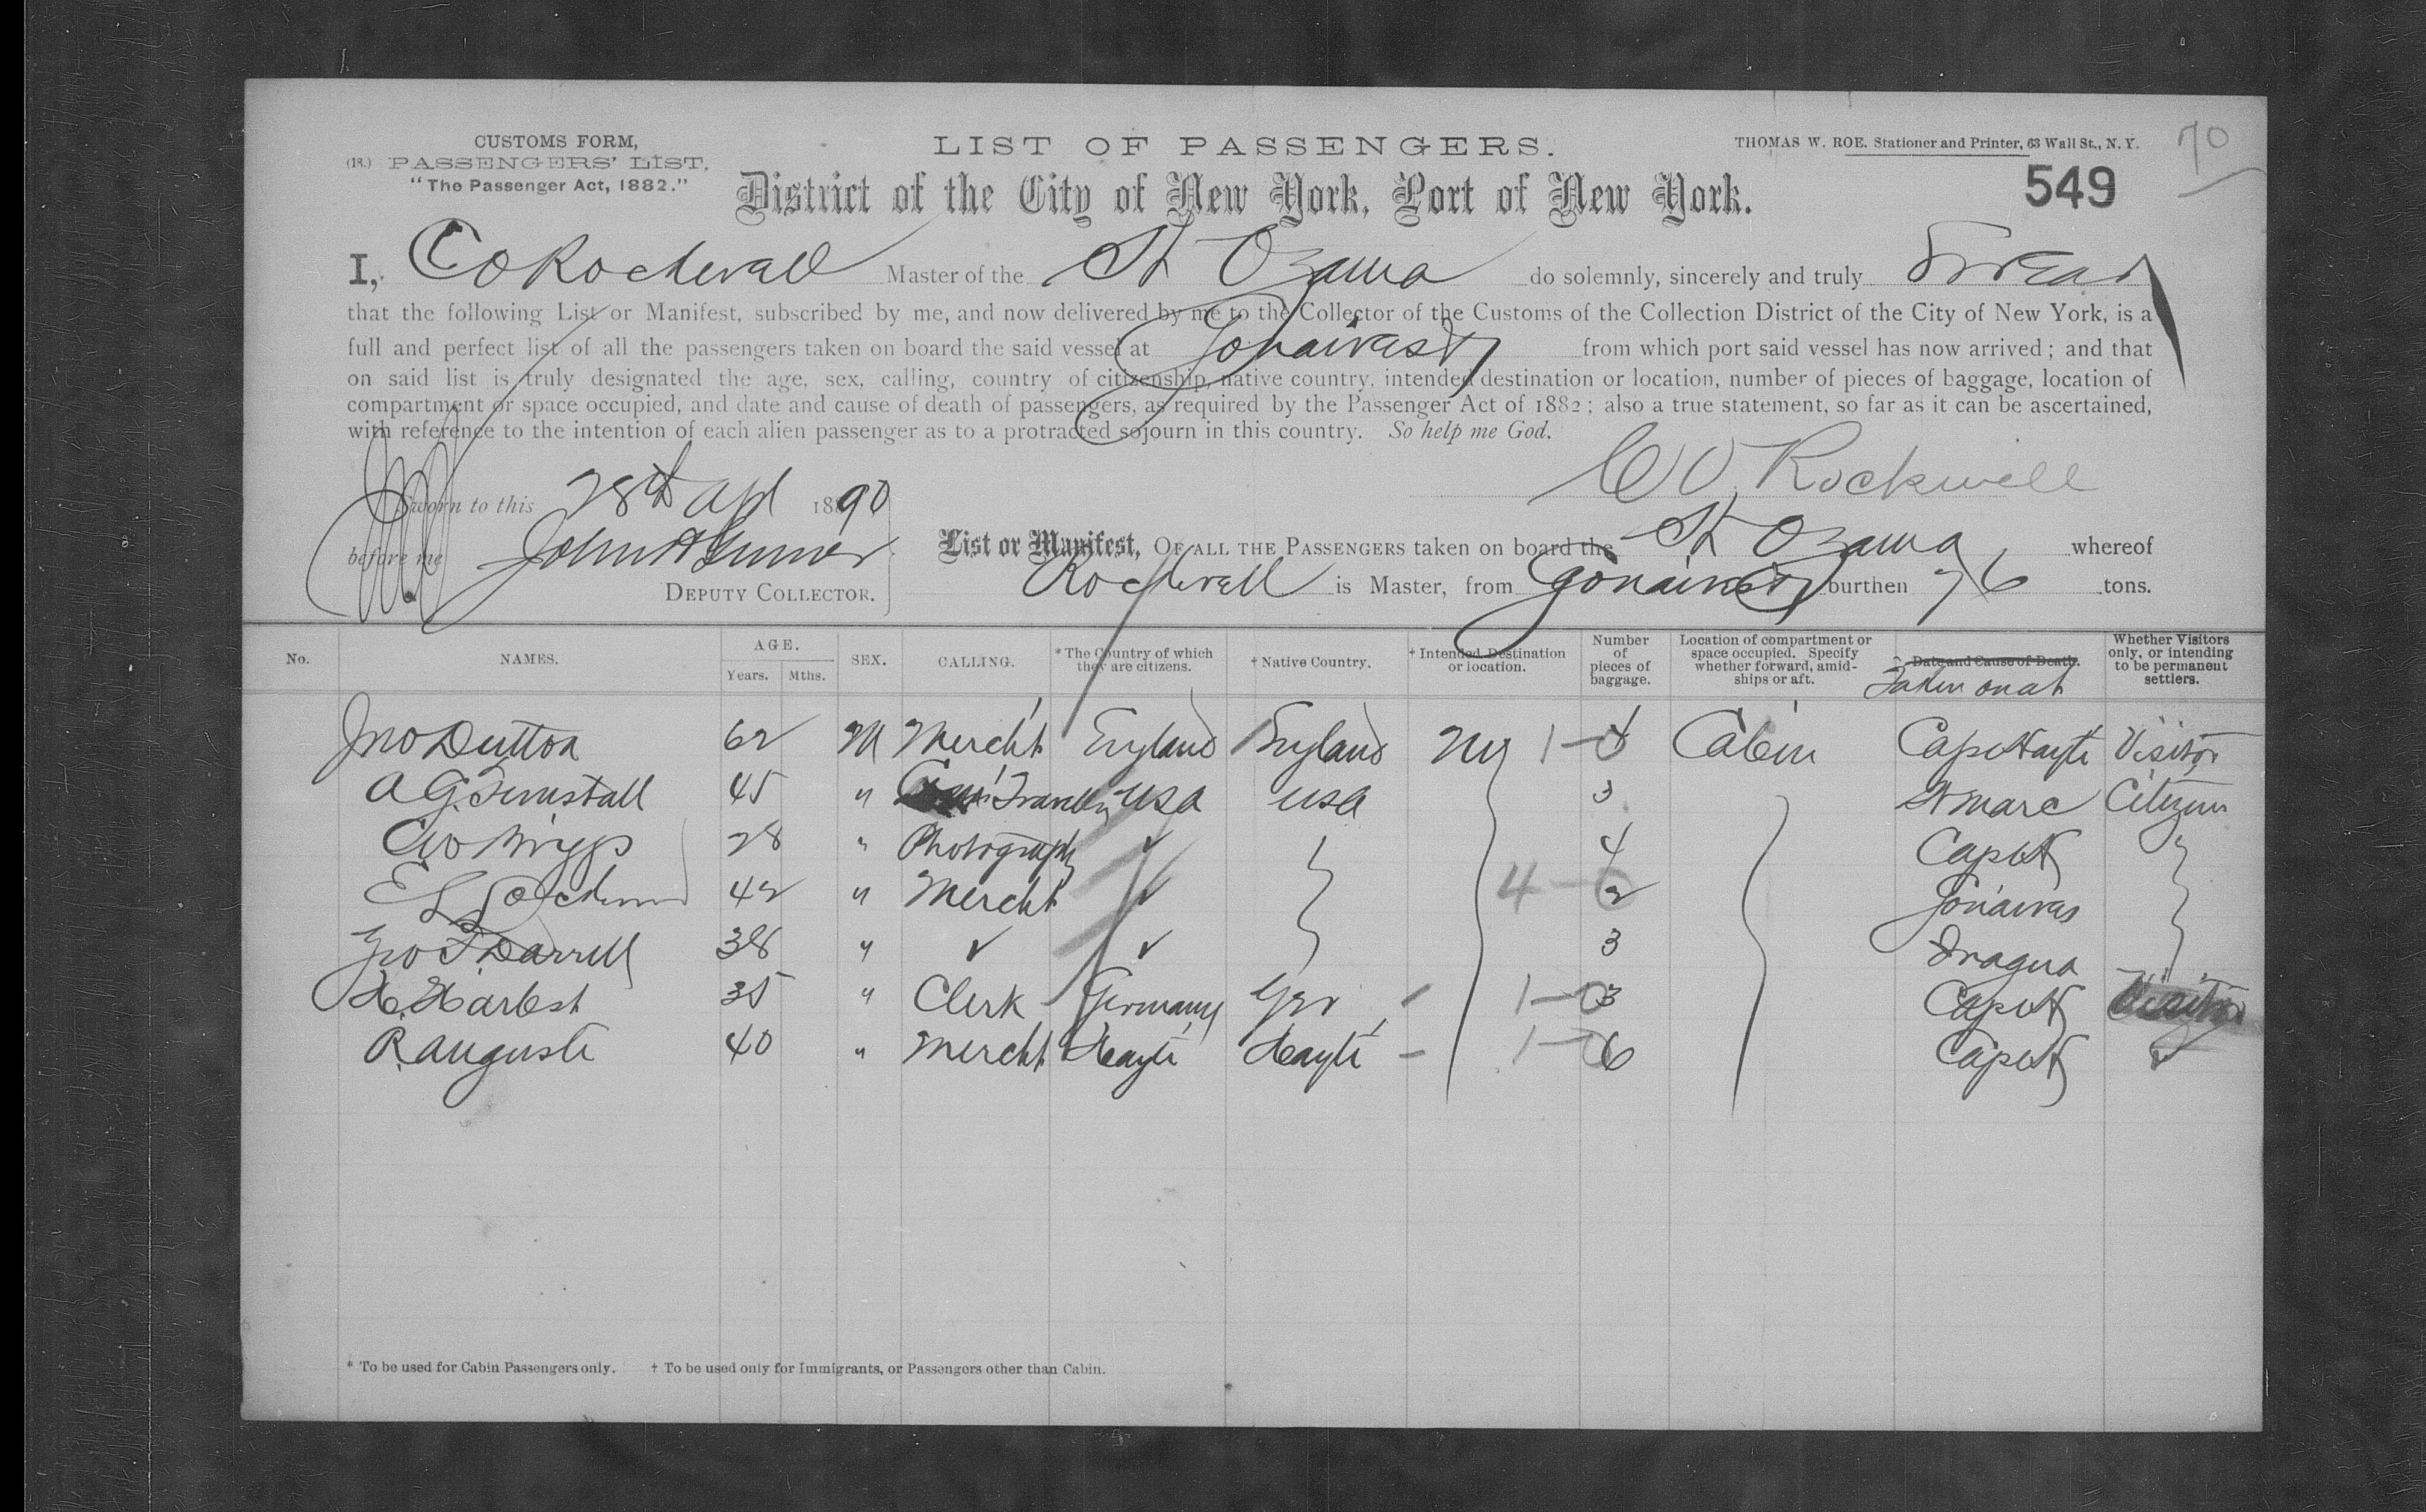 CUSTOMS FORM,
(18.) PASSENGERS' LIST.
"The Passenger Act, 1882."
LIST OF PASSENGERS.
THOMAS W. ROE. Stationer and Printer, 63 Wall St., N. Y.
70
549
District of the City of New York, Port of New York.
I, C O Rockwell Master of the St Ozama do solemnly, sincerely and truly Swear
that the following List or Manifest, subscribed by me, and now delivered by me to the Collector of the Customs of the Collection District of the City of New York, is a
full and perfect list of all the passengers taken on board the said vessel at Gonaives from which port said vessel has now arrived; and that
on said list is truly designated the age, sex, calling, country of citizenship, native country, intended destination or location, number of pieces of baggage, location of
compartment or space occupied, and date and cause of death of passengers, as required by the Passenger Act of 1882; also a true statement, so far as it can be ascertained,
with reference to the intention of each alien passenger as to a protracted sojourn in this country. So help me God.
C O Rockwell
Sworn to this 28th Apl 1890
before me John
DEPUTY COLLECTOR.
List or Manifest, OF ALL THE PASSENGERS taken on board the St Ozama whereof
Rockwell is Master, from Gonaives burthen 76 tons.
No. NAMES. AGE. Years. Mths. SEX. CALLING. * The Country of which they are citizens. † Native Country. † Intended Destination or location. Number of pieces of baggage. Location of compartment or space occupied. Specify whether forward, amidships or aft. Date and Cause of Death. Taken on at Whether Visitors only, or intending to be permanent settlers.
Jno Dutton 62 M Mercht England England NY 1-0 4 Cabin Cape Hayti Visitor
A G. Tunstall 45 " Traveller USA USA 3 St Marc Citizen
Geo Briggs 28 " Photograph ✓ 4 Cape H
E L 42 " Mercht ✓ 4-0 2 Gonaives
Geo F. Darrell 38 " ✓ ✓ 3 Inagua
H. Harbst 35 " Clerk Germany Ger 1-0 3 Cape H Visitor
R. Auguste 40 " Mercht Hayti Hayti 1-0 6 Cape H ✓
* To be used for Cabin Passengers only. † To be used only for Immigrants, or Passengers other than Cabin.